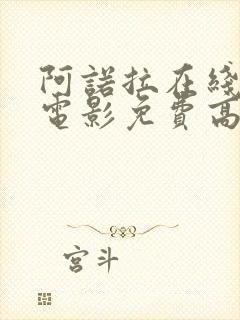 阿諾拉在綫
電影免費高
宮斗